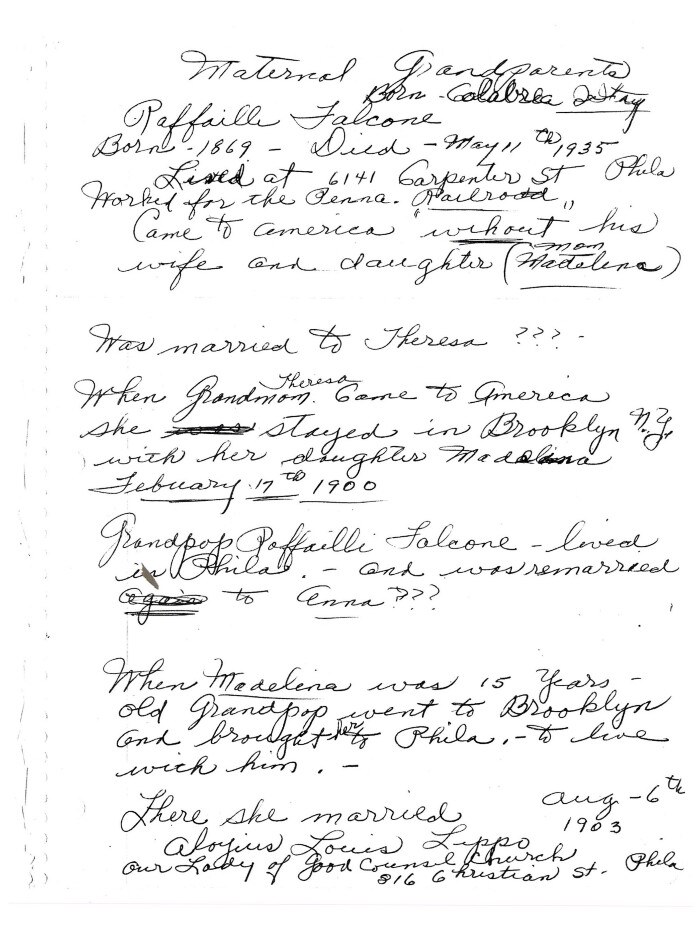 Maternal Grandparents
Born - Calabrea Italy
Raffaille Falcone
Born - 1869 - Died - May 11th 1935
Lived at 6141 Carpenter St Phila
Worked for the Penna. Railroad,,
Came to america "without his
wife and daughter (mom Madelina)
Was married to Theresa ??? -
When Grandmom Theresa Came to America
she stayed in Brooklyn N.Y.
with her daughter Madelina
Febuary. 17th 1900
Grandpop Raffailli Falcone - lived
in Phila. - and was remarried
again to Anna ???
When Madelina was 15 Years -
old Grandpop went to Brooklyn
and brought her to Phila. - to live
with him. -
There she married aug - 6th
1903
Aloyius Louis Lippo
Our Lady of Good Counsel Church
816 Christian St. Phila